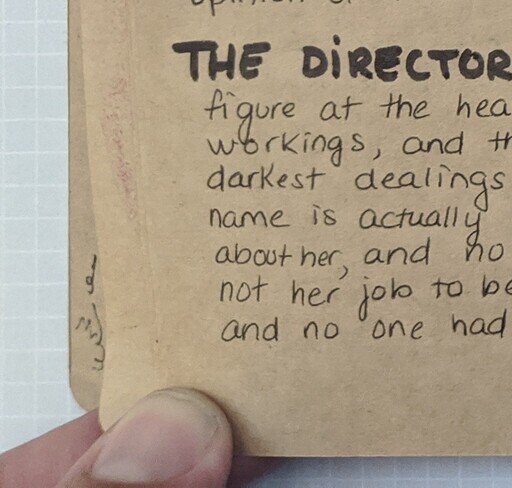 THE DIRECTOR
figure at the hea
workings, and th
darkest dealings
name is actually
about her, and no
not her job to be
and no one had